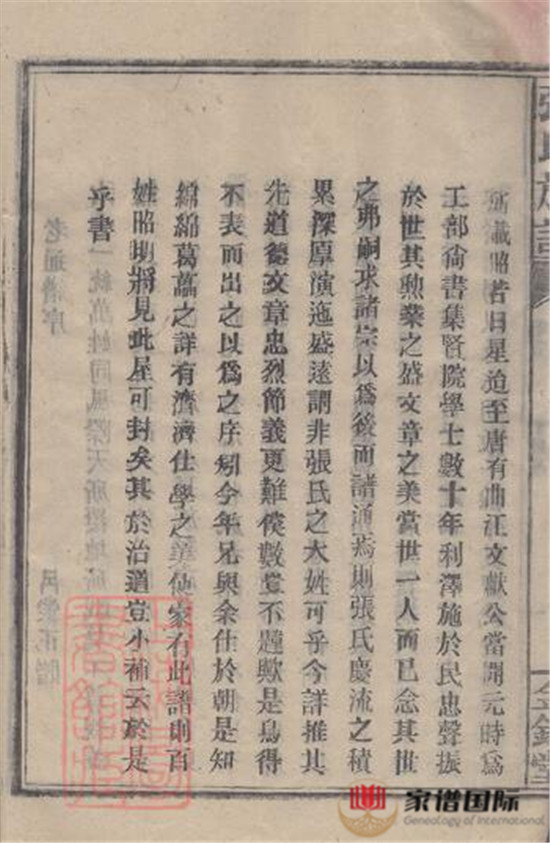 張氏族譜
金鑑堂
所載昭若日星迨至唐有曲江文獻公當開元時爲
工部尙書集賢院學士數十年利澤施於民忠聲振
於世其勲業之盛文章之美當世一人而已念其世
之弗嗣求諸宗以爲後而諸通焉則張氏慶流之積
累深原演迤盛遠謂非張氏之大姓可乎今詳推其
先道德文章忠烈節義更難僕數豈不韙歟是烏得
不表而出之以爲之序矧今年兄與余仕於朝是知
綿綿葛藟之詳有濟濟仕學之美使家有此譜則百
姓昭明將見此屋可封矣其於治道豈小補云於是
乎書
老通譜序
家谱国际
Genealogy of International